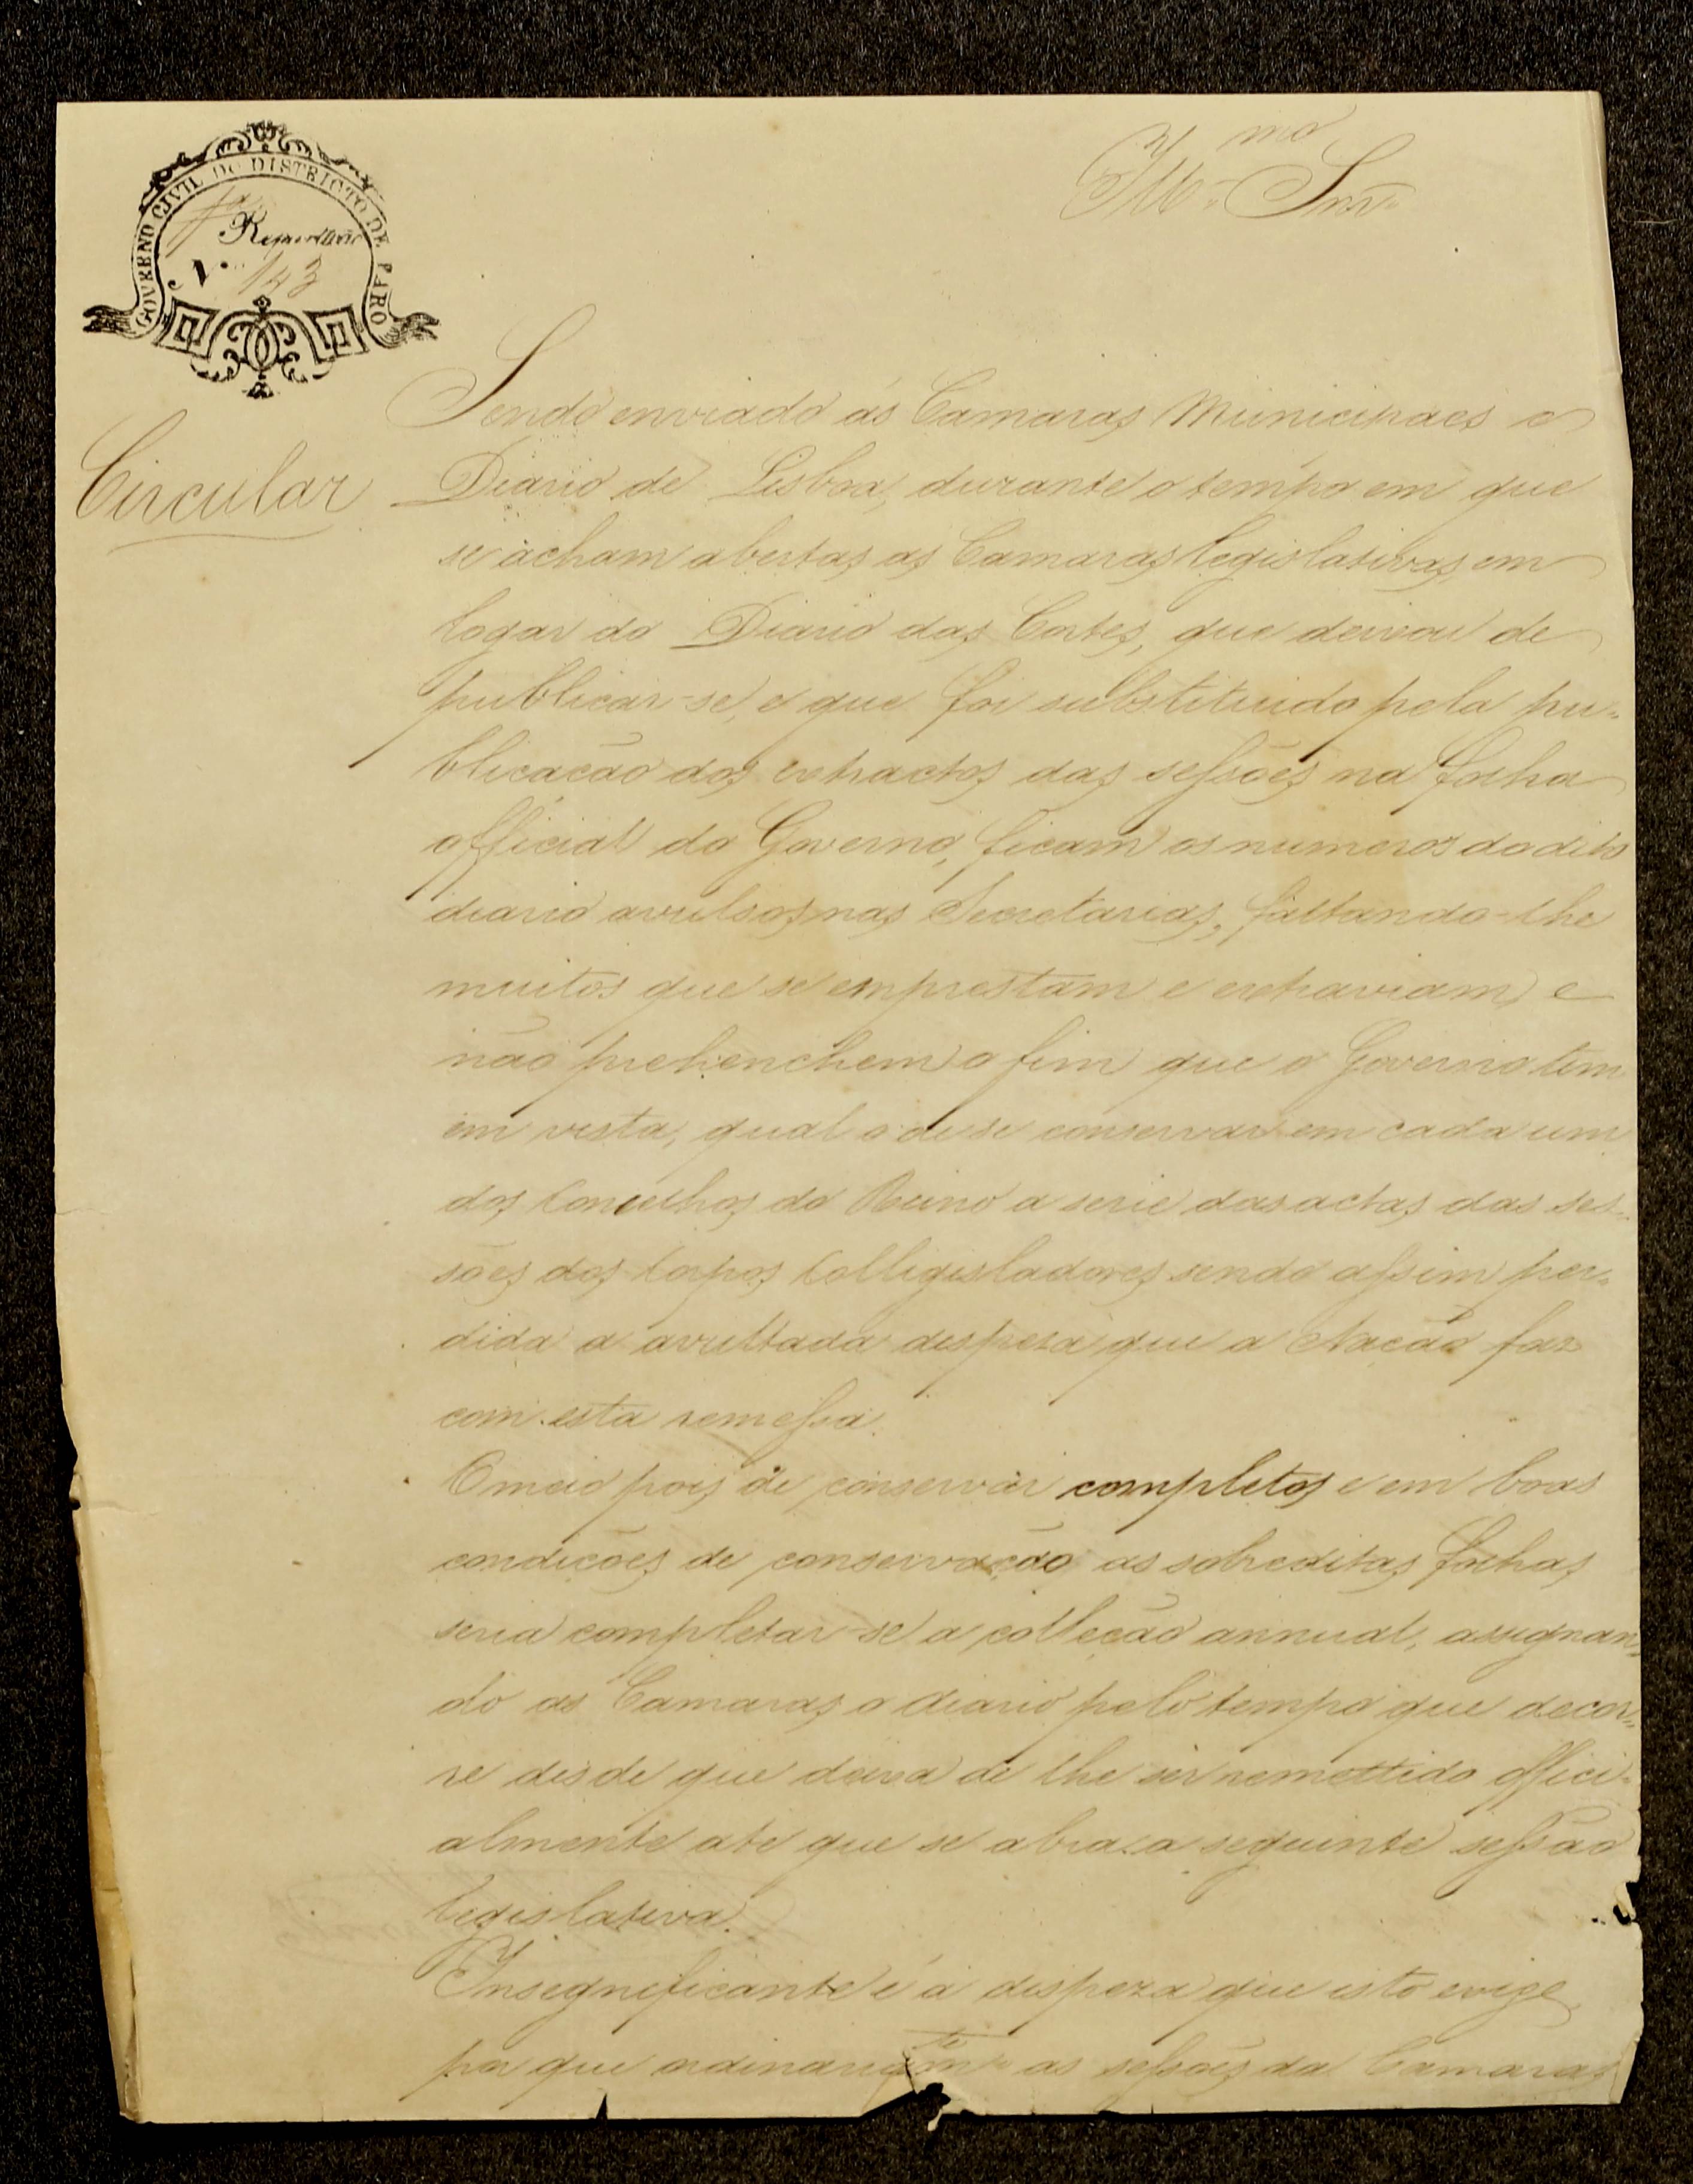 GOVERNO CIVIL DO DISTRICTO DE FARO
1ª
Repartição
N.º 143
Illmo Snr.
Circular
Sendo enviado ás Camaras Municipaes o
Diario de Lisboa, durante o tempo em que
se acham abertas as Camaras legislativas, em
logar do Diario das Cortes, que deixou de
publicar-se, e que foi substituido pela pu-
blicacão dos extractos das sessões na folha
official do Governo, ficam os numeros do dito
diario avulsos nas Secretarias, faltando-lhe
muitos que se emprestam e extraviam, e
não prehenchem o fim que o Governo tem
em vista, qual o de se conservar em cada um
dos Concelhos do Reino a serie das actas das ses-
sões dos Corpos Collegisladores sendo assim per-
dida a avultada despeza que a Nacão faz
com esta remessa.
O meio pois de conservar completos e em boas
condicões de conservacão as sobreditas folhas
seria completar-se a collecão annual, assignan-
do as Camaras o diario pelo tempo que decor-
re desde que deixa de lhe ser remettido offici-
almente até que se abra a seguinte sessão
legislativa.
Insegnificante é a despeza que isto exige,
por que ordinariamte as sessões da Camaras